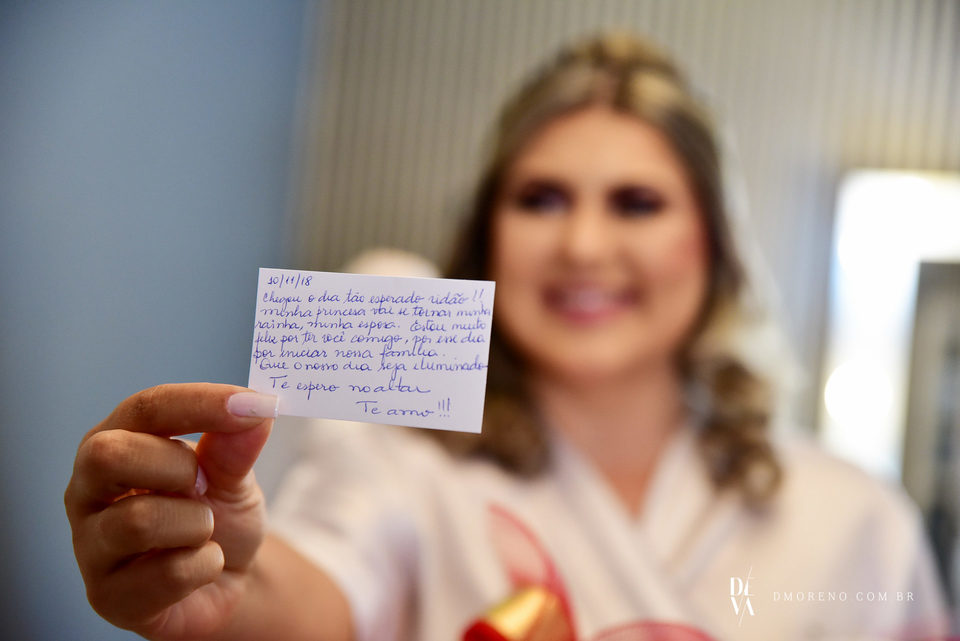 10/11/18
Chegou o dia tão esperado vidão !!
minha princesa vai se tornar minha
rainha, minha esposa. Estou muito
feliz por ter você comigo, por esse dia
por iniciar nossa família.
Que o nosso dia seja iluminado
Te espero no altar
Te amo!!!
DEVA
DMORENO.COM.BR